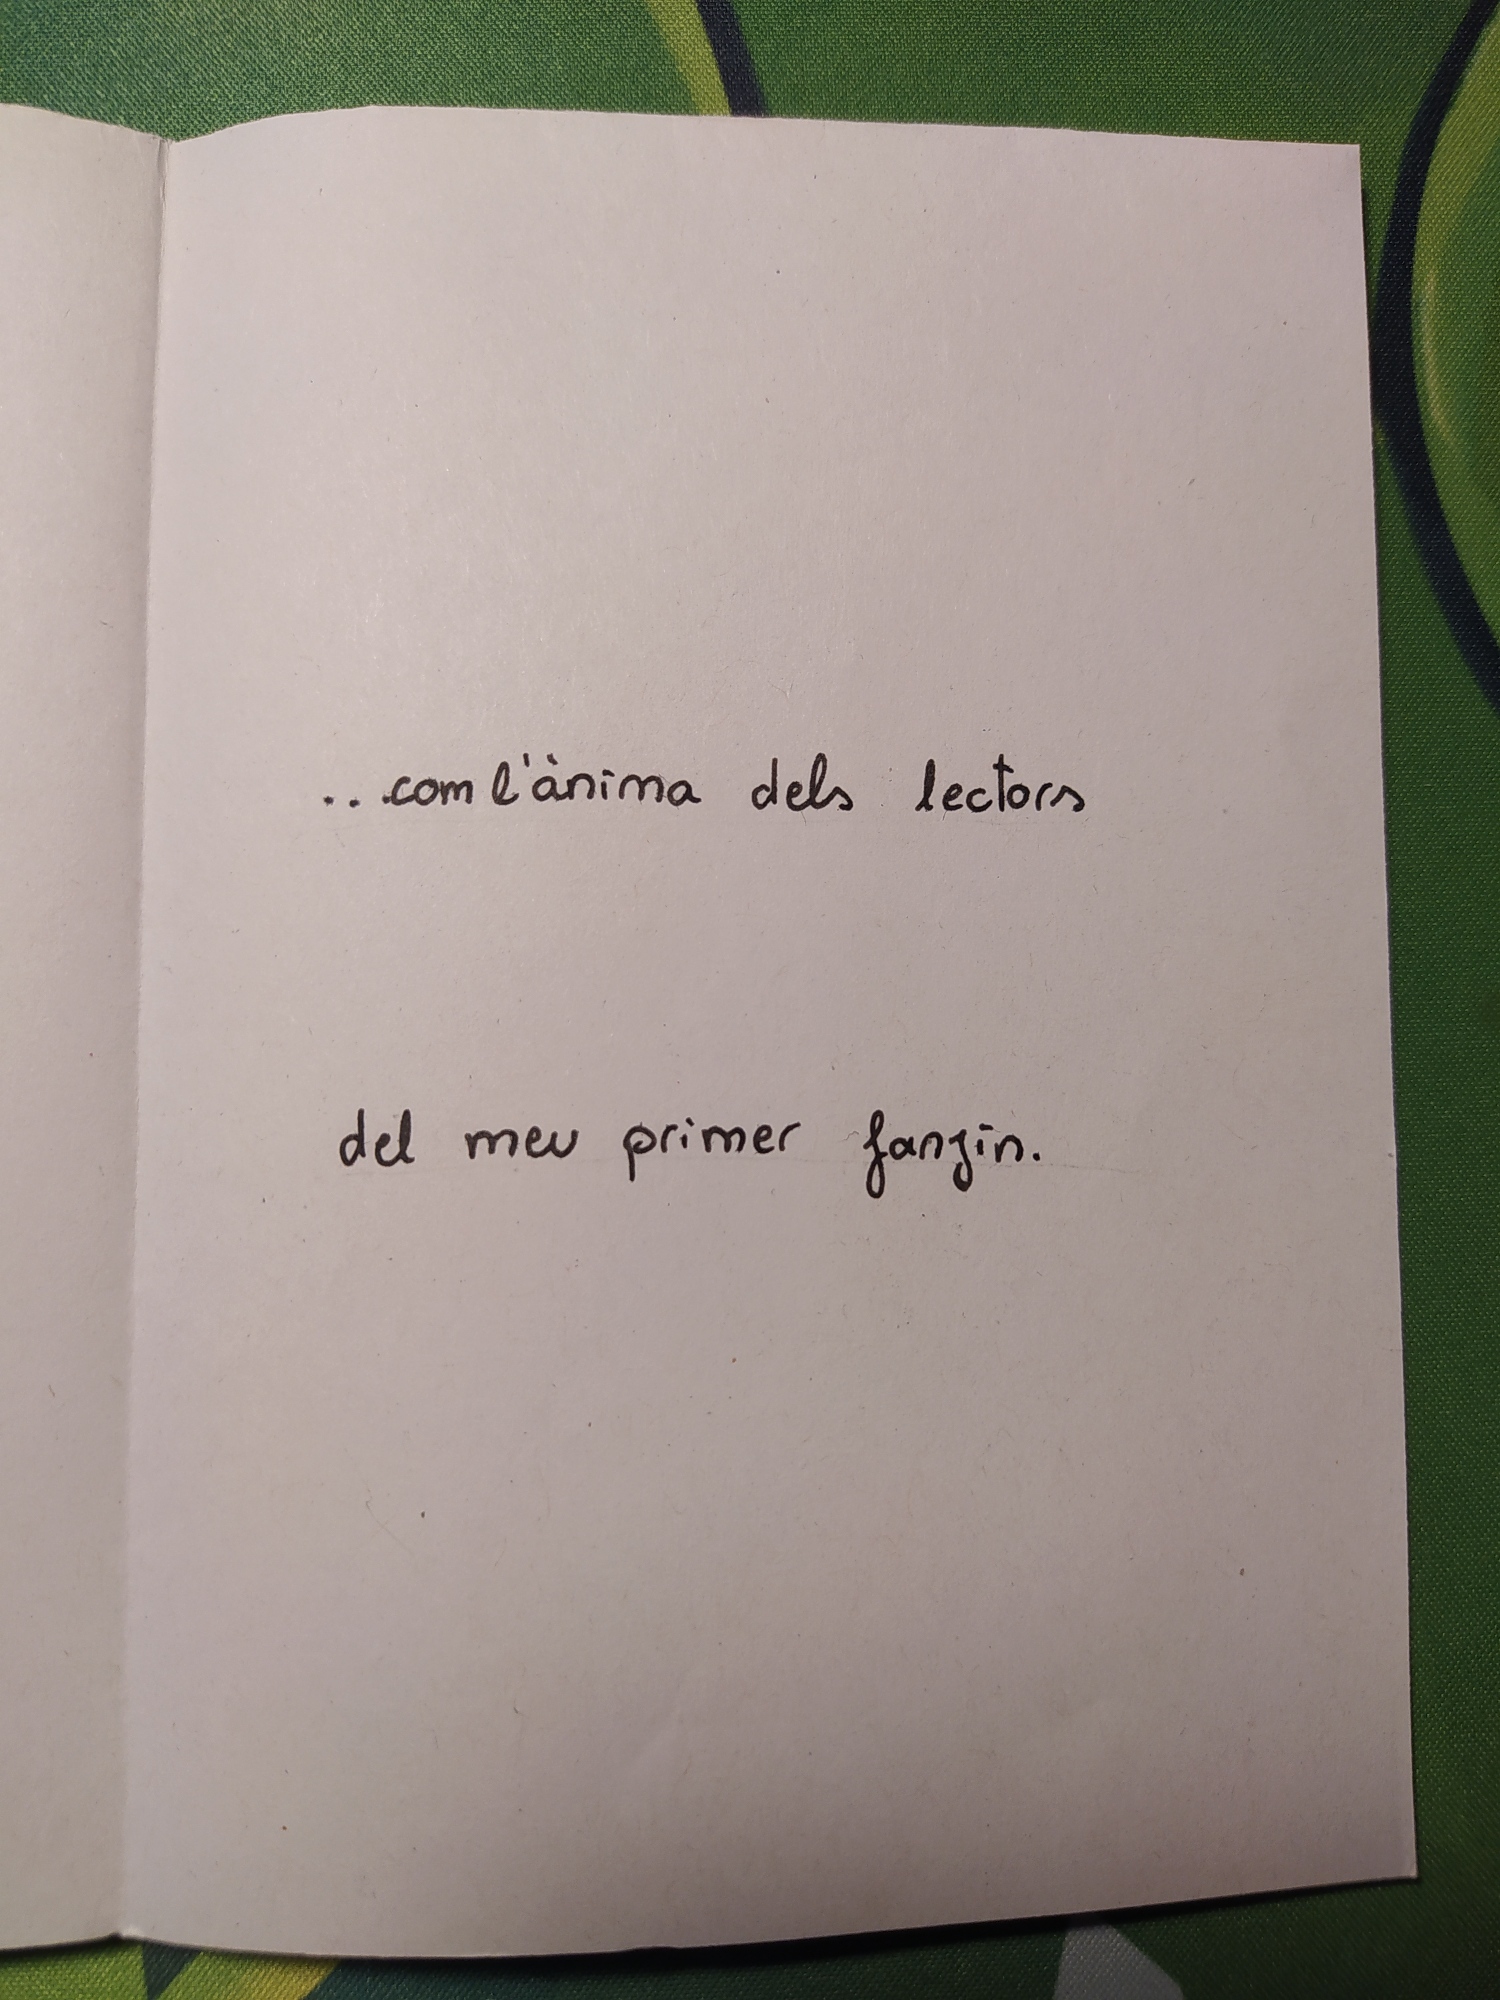 ...com l'ànima dels lectors
del meu primer fanzín.